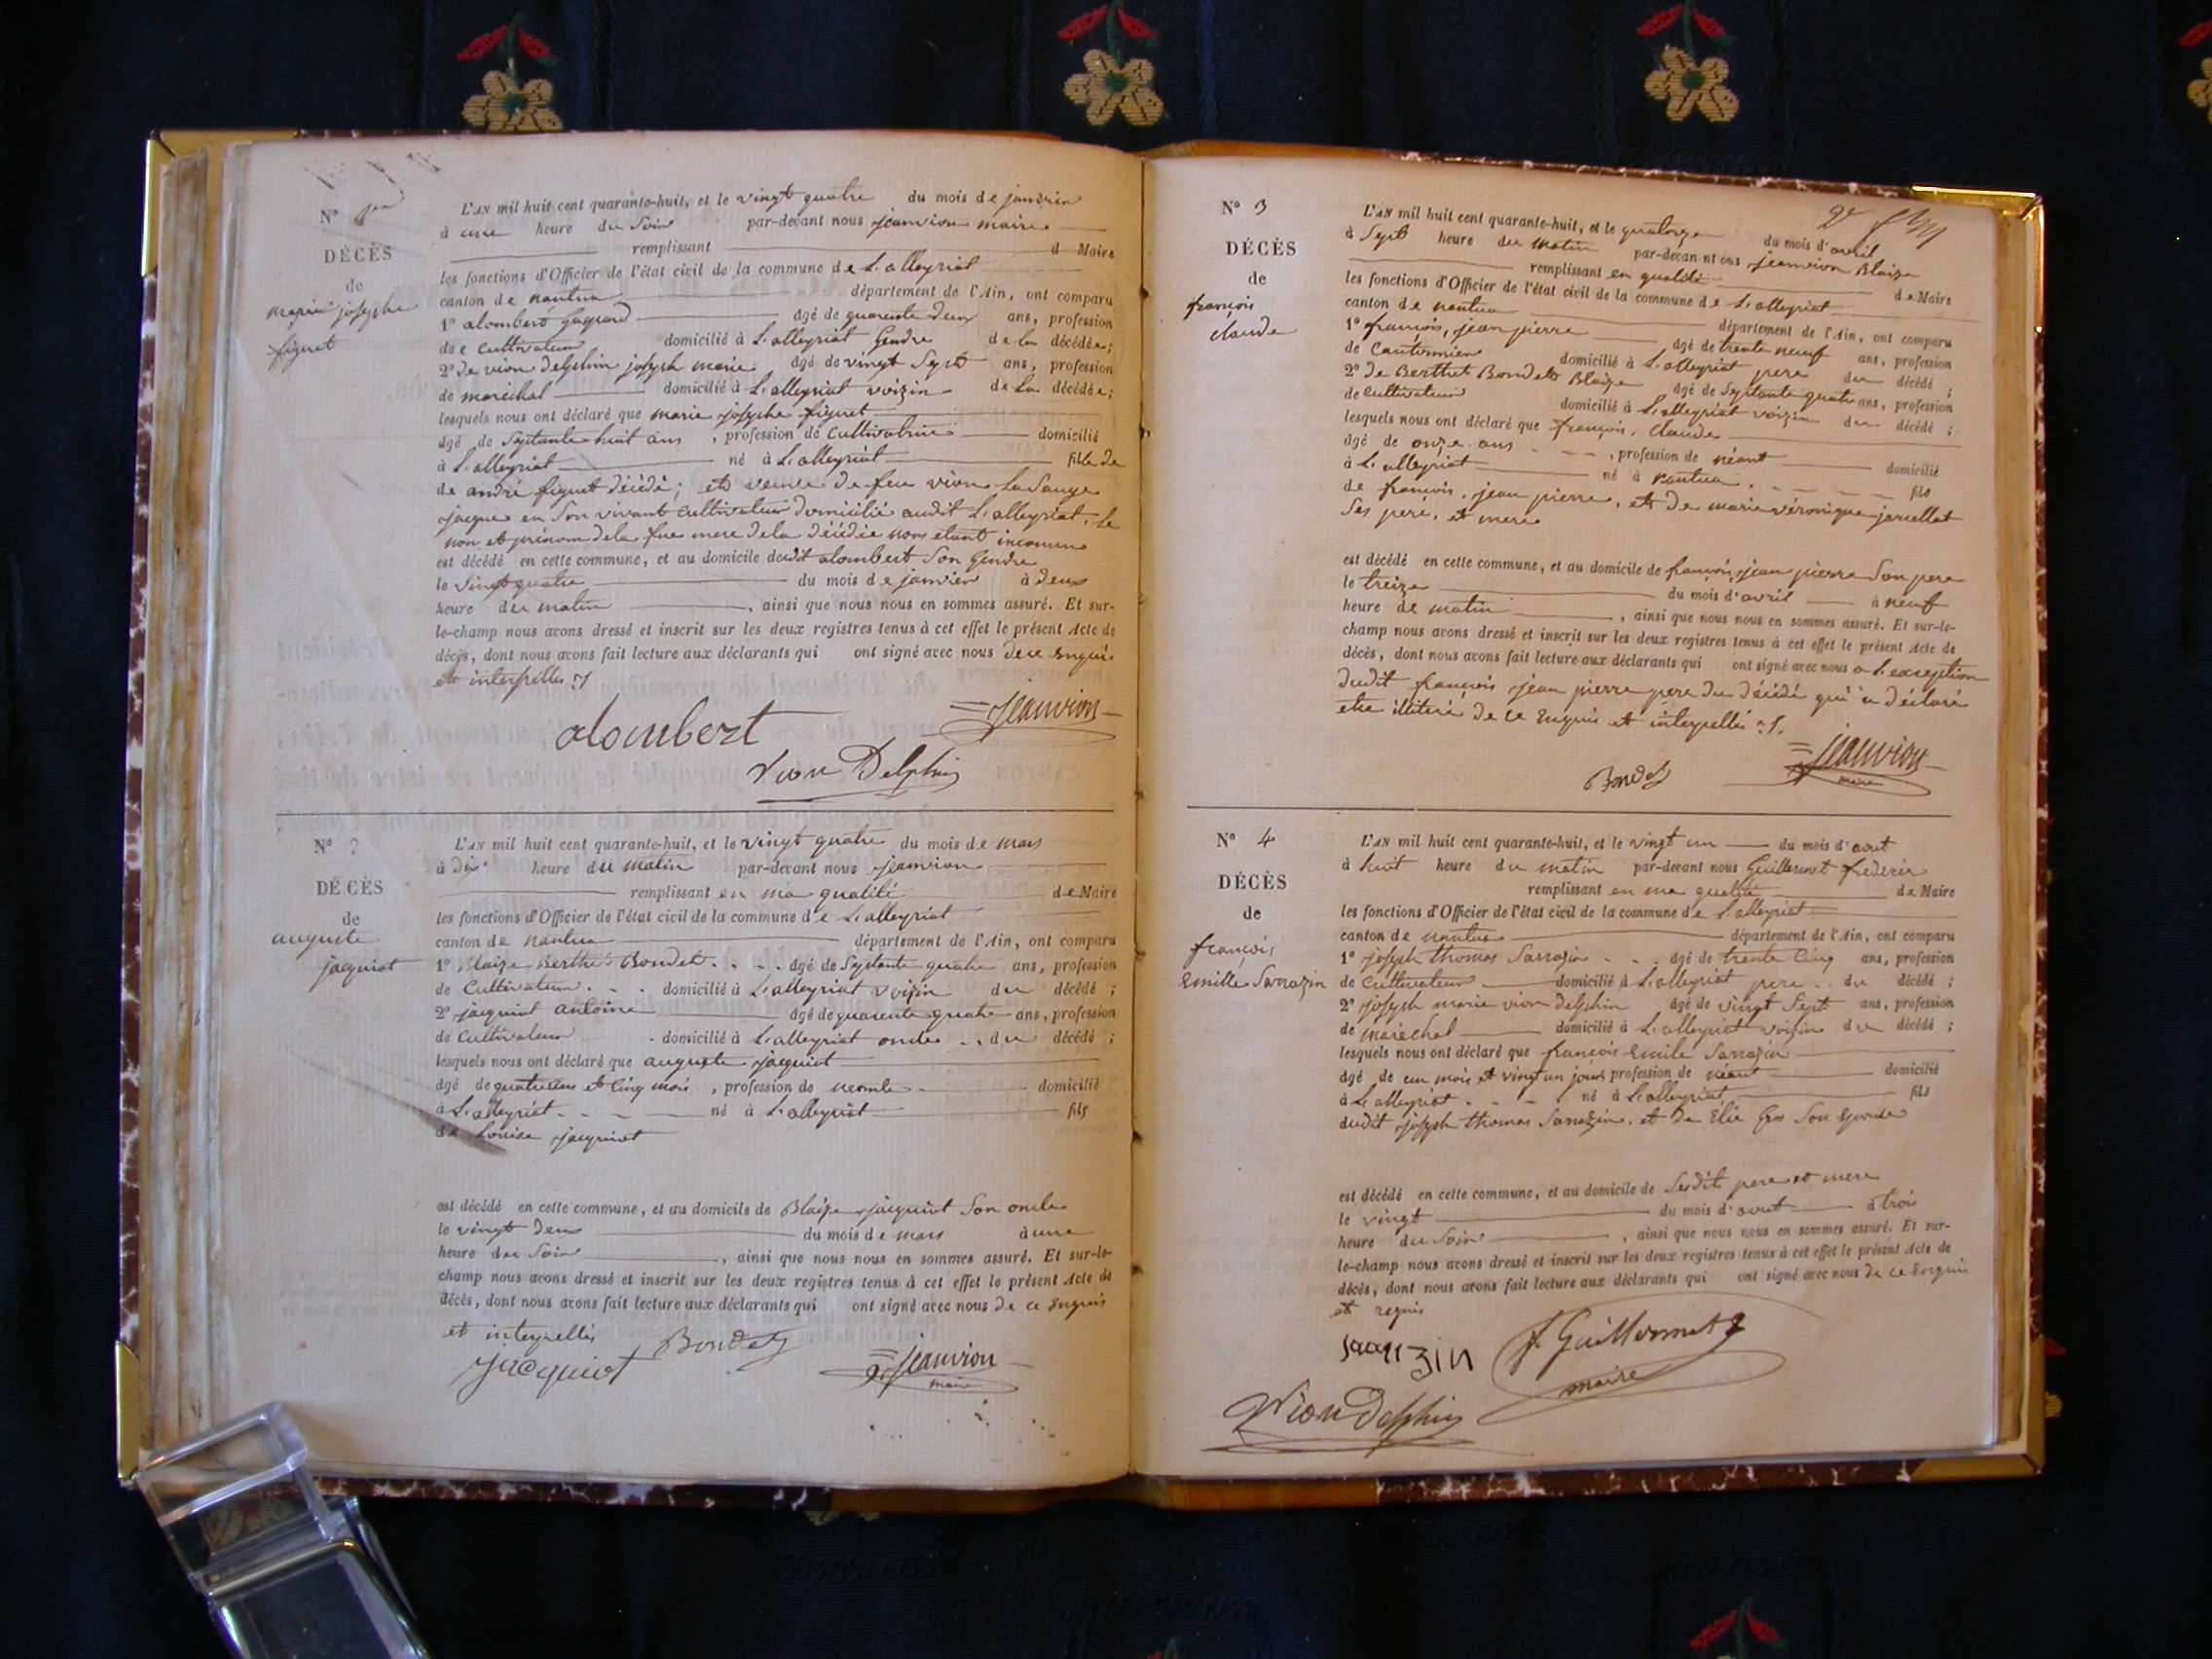 N° 1er
DÉCÈS
de
marie josephe
figuet
L'AN mil huit cent quarante-huit, et le vingt quatre du mois de janvier
à une heure du Soir par-devant nous jeanvion maire
remplissant d Maire
les fonctions d'Officier de l'état civil de la commune de L'alleyriat
canton de nantua département de l'Ain, ont comparu
1° alombert Gaspard âgé de quarente deux ans, profession
de cultivateur domicilié à L'alleyriat Gendre de la décédée;
2° de vion delphin joseph marie âgé de vingt Sept ans, profession
de maréchal domicilié à L'alleyriat voizin de la décédée;
lesquels nous ont déclaré que marie josephe figuet
âgé de Septante huit ans, profession de cultivatrice domicilié
à L'alleyriat né à L'alleyriat fille de
de andré figuet décédé; et veuve de feu vion
jacque en Son vivant cultivateur domicilié audit L'alleyriat, le
non et prénom dela feue mere dela décédée nous etant inconnu
est décédé en cette commune, et au domicile dudit alombert Son Gendre
le vingt quatre du mois de janvier à deux
heure du matin, ainsi que nous nous en sommes assuré. Et sur-
le-champ nous avons dressé et inscrit sur les deux registres tenus à cet effet le présent Acte de
décès, dont nous avons fait lecture aux déclarants qui ont signé avec nous de ce Enquis
et interpellés
alombert
jeanvion
Vion Delphin
N° 2
DÉCÈS
de
auguste
jacquiot
L'AN mil huit cent quarante-huit, et le vingt quatre du mois de mars
à dix heure du matin par-devant nous jeanvion
remplissant en ma qualité de Maire
les fonctions d'Officier de l'état civil de la commune de L'alleyriat
canton de nantua département de l'Ain, ont comparu
1° Blaize Berthet Bondet âgé de Septante quatre ans, profession
de Cultivateur domicilié à L'alleyriat voizin du décédé;
2° jacquiot antoine âgé de quarente quatre ans, profession
de Cultivateur domicilié à L'alleyriat oncle du décédé;
lesquels nous ont déclaré que auguste jacquiot
âgé de quatre ans et Cinq mois, profession de domicilié
à L'alleyriat né à L'alleyriat fils
de Louise jacquiot
est décédé en cette commune, et au domicile de Blaize jacquiot Son oncle
le vingt deux du mois de mars à une
heure du Soir, ainsi que nous nous en sommes assuré. Et sur-le-
champ nous avons dressé et inscrit sur les deux registres tenus à cet effet le présent Acte de
décès, dont nous avons fait lecture aux déclarants qui ont signé avec nous de ce Enquis
et interpellés
Bondet
jacquiot
jeanvion
maire
2e
N° 3
DÉCÈS
de
françois
claude
L'AN mil huit cent quarante-huit, et le quatorze du mois d'avril
à Sept heure du matin par-devan nt ous jeanvion Blaize
remplissant en qualité de Maire
les fonctions d'Officier de l'état civil de la commune de L'alleyriat
canton de nantua département de l'Ain, ont comparu
1° françois, jean pierre âgé de trente neuf ans, profession
de Cantonnier domicilié à L'alleyriat pere du décédé;
2° de Berthet Bondet Blaize âgé de Septante quatre ans, profession
de cultivateur domicilié à L'alleyriat voizin du décédé;
lesquels nous ont déclaré que françois, Claude
âgé de onze ans, profession de néant domicilié
à L'alleyriat né à nantua fils
de françois, jean pierre, et de marie véronique jarcellat
Ses peré, et mere
est décédé en cette commune, et au domicile de françois, jean pierre Son pere
le treize du mois d'avril à neuf
heure de matin, ainsi que nous nous en sommes assuré. Et sur-le-
champ nous avons dressé et inscrit sur les deux registres tenus à cet effet le présent Acte de
décès, dont nous avons fait lecture aux déclarants qui ont signé avec nous a L'exception
dudit françois jean pierre pere du décédé qui a déclaré
etre illiteré de ce Enquis et interpellés
Bondet
jeanvion
maire
N° 4
DÉCÈS
de
françois
Emille Sarrazin
L'AN mil huit cent quarante-huit, et le vingt un du mois d'aout
à huit heure du matin par-devant nous Guillermet frederic
remplissant en ma qualité de Maire
les fonctions d'Officier de l'état civil de la commune de L'alleyriat
canton de nantua département de l'Ain, ont comparu
1° joseph thomas Sarrazin âgé de trente Cinq ans, profession
de Cultivateur domicilié à L'alleyriat pere du décédé;
2° joseph marie vion delphin âgé de vingt Sept ans, profession
de marechal domicilié à L'alleyriat voizin du décédé;
lesquels nous ont déclaré que françois Emile Sarrazin
âgé de un mois et vingt un jours profession de néant domicilié
à L'alleyriat né à L'alleyriat fils
dudit joseph thomas Sarrazin, et de Elié Gros Son Epouse
est décédé en cette commune, et au domicile de Sesdits pere et mere
le vingt du mois d'aout à trois
heure du Soir, ainsi que nous nous en sommes assuré. Et sur-
le-champ nous avons dressé et inscrit sur les deux registres tenus à cet effet le présent Acte de
décès, dont nous avons fait lecture aux déclarants qui ont signé avec nous de ce Enquis
et requis
f. Guillermet
maire
Vion Delphin